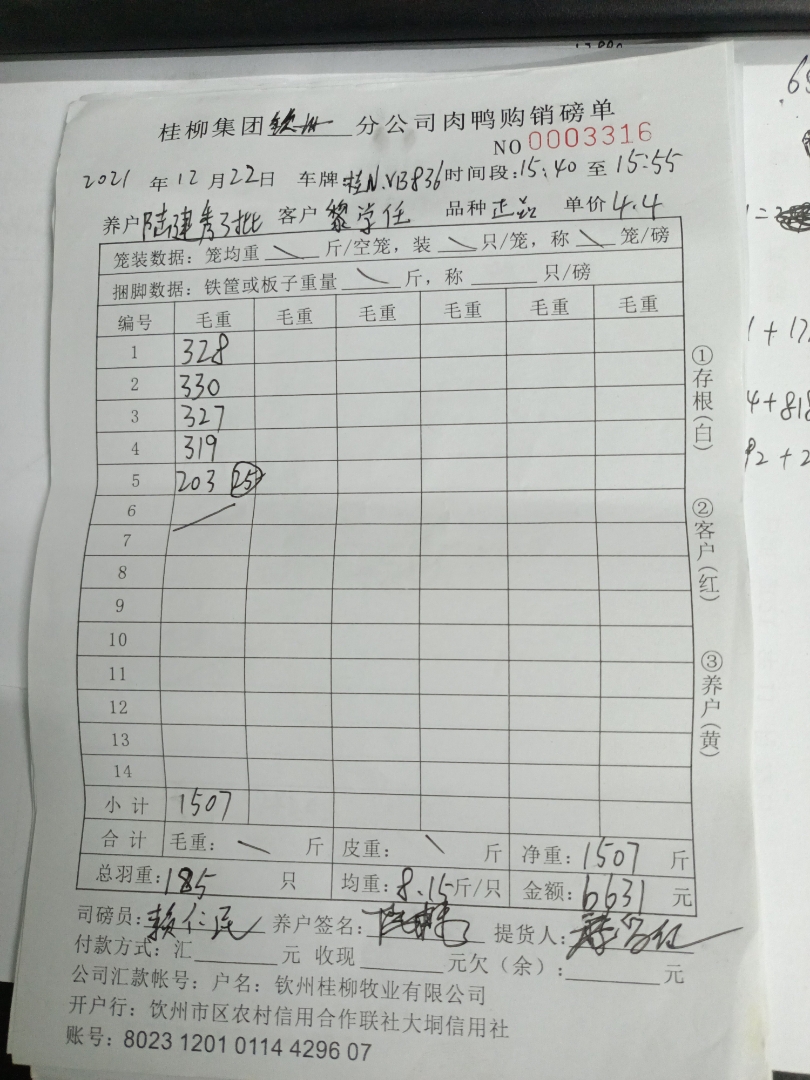 桂柳集团钦州分公司肉鸭购销磅单
NO 0003316
2021年12月22日 车牌:桂N.VB836 时间段:15:40至15:55
养户 陆建秀3批 客户 黎学任 品种 正品 单价 4.4
笼装数据:笼均重 \ 斤/空笼,装 \ 只/笼,称 \ 笼/磅
捆脚数据:铁筐或板子重量 \ 斤,称 只/磅
编号 毛重 毛重 毛重 毛重 毛重 毛重
1 328
2 330
3 327
4 319
5 203 25
6
7
8
9
10
11
12
13
14
小计 1507
合计 毛重: \ 斤 皮重: \ 斤 净重:1507斤
总羽重:185只 均重:8.15斤/只 金额:6631元
司磅员:赖仁民 养户签名: 提货人:
付款方式:汇 元 收现 元欠(余): 元
公司汇款帐号:户名:钦州桂柳牧业有限公司
开户行:饮州市区农村信用合作联社大垌信用社
账号:8023 1201 0114 4296 07
①存根(白)
②客户(红)
③养户(黄)
4+818